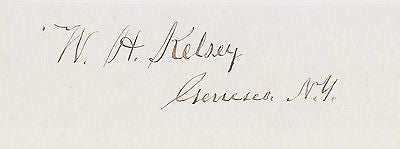 W. H. Kelsey
Geneseo. N.Y.